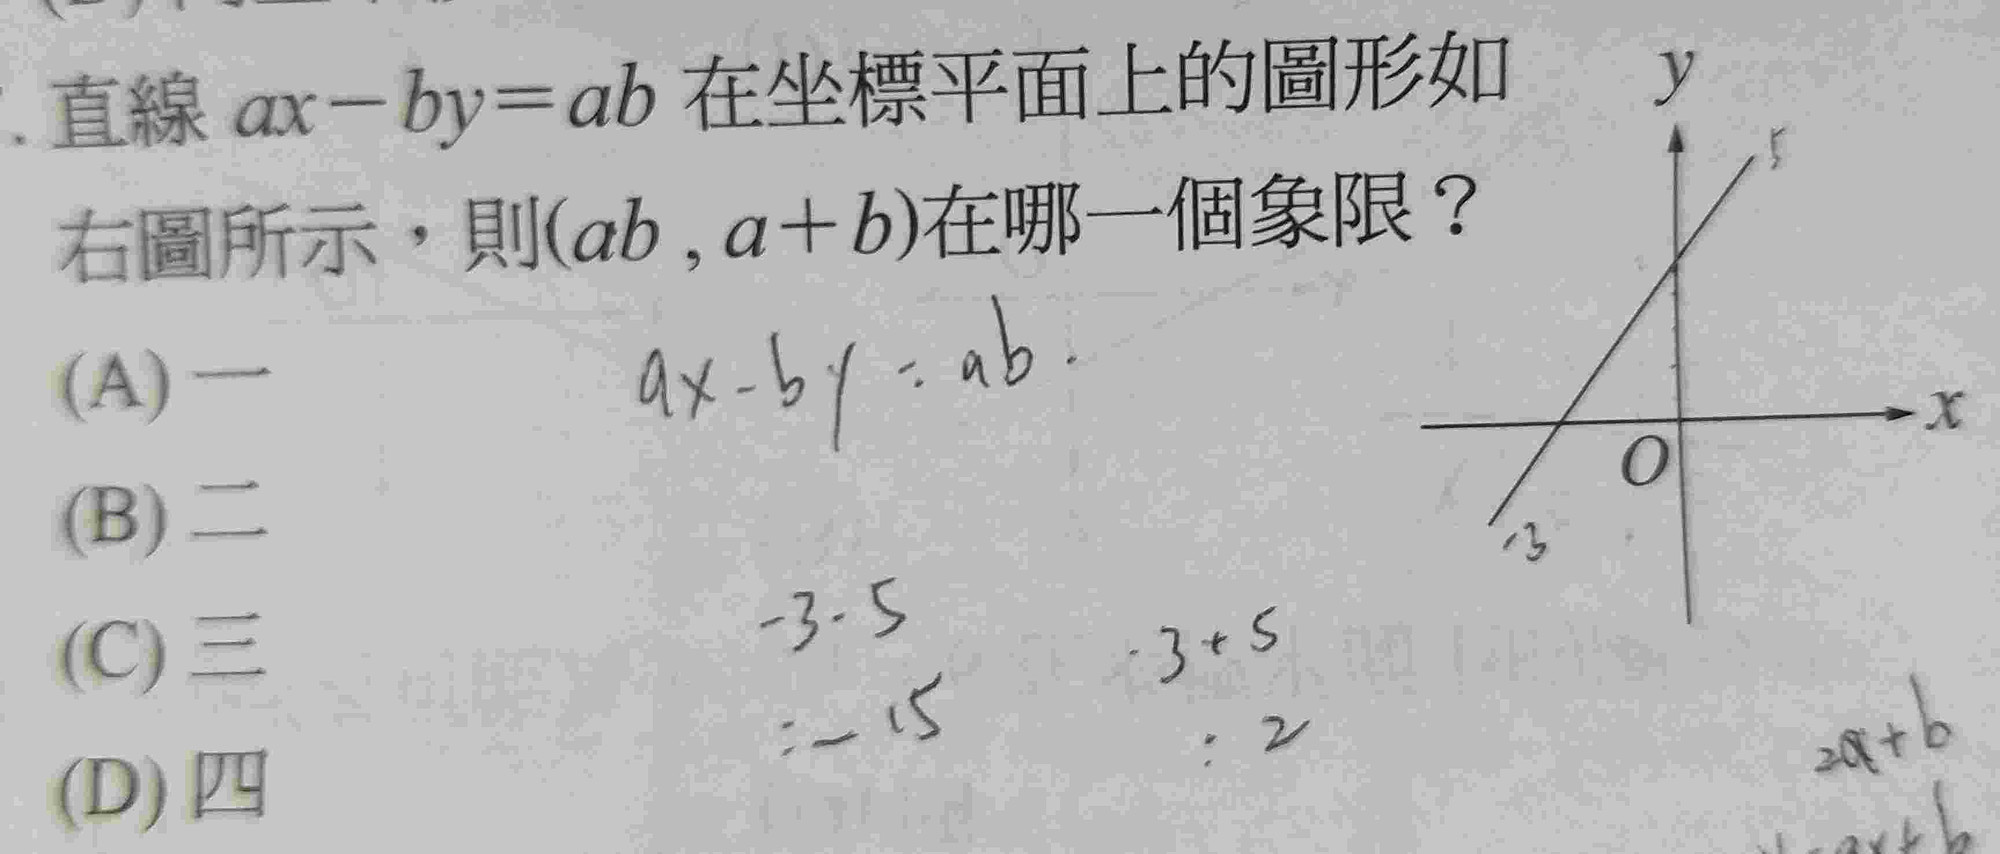 直線 ax－by＝ab 在坐標平面上的圖形如
右圖所示，則(ab , a＋b)在哪一個象限？
(A) 一
(B) 二
(C) 三
(D) 四
y
x
O
5
-3
ax-by=ab.
-3·5
=-15
-3+5
=2
2a+b